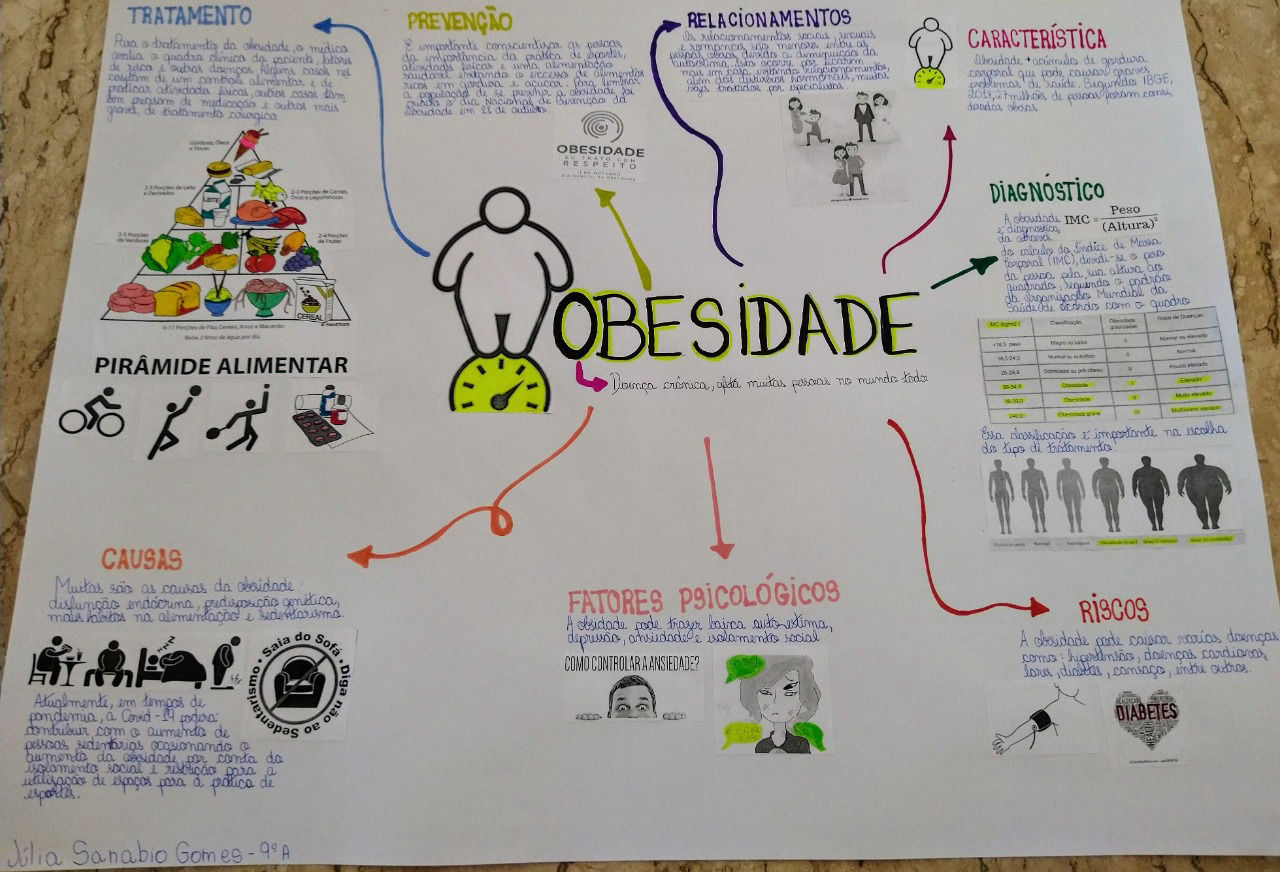 TRATAMENTO
Para o tratamento da obesidade, o médico
avalia o quadro clínico do paciente, fatores
de risco e outras doenças. Alguns casos ne
cessitam de um controle alimentar e de
praticar atividades físicas, outros casos tam
bém precisam de medicação e outros mais
grave, de tratamento cirúrgico
Gorduras, Óleos
e Doces
2-3 Porções de Leite
e Derivados
2-3 Porções de Carnes,
Ovos e Leguminosas
LEITE
3-5 Porções
de Verduras
2-4 Porções
de Frutas
CEREAL
6-11 Porções de Pão, Cereais, Arroz e Macarrão
Beba 2 litros de água por dia.
PIRÂMIDE ALIMENTAR
PREVENÇÃO
É importante conscientizar as pessoas
da importância da prática de esportes,
atividades físicas e uma alimentação
saudável evitando o excesso de alimentos
ricos em gordura e açúcar. Para lembrar
a população de se prevenir a obesidade foi
criado o Dia Nacional de Prevenção da
obesidade em 11 de outubro.
OBESIDADE
EU TRATO COM
RESPEITO
RELACIONAMENTOS
Os relacionamentos sociais, sexuais
e românticos são menores entre as
pessoas obesas, devido a diminuição da
autoestima. Isto ocorre por ficarem
mais em casa, evitando relacionamentos,
além dos distúrbios hormonais, muitas
vezes tratados por especialistas
CARACTERÍSTICA
Obesidade → acúmulo de gordura
corporal que pode causar graves
problemas de saúde. Segundo IBGE,
2013, 27 milhões de pessoas foram consi
deradas obesas.
DIAGNÓSTICO
A obesidade
é diagnostica
da através
IMC = Peso
(Altura)²
do cálculo do Índice de Massa
Corporal (IMC), divide-se o peso
da pessoa pela sua altura ao
quadrado, seguindo o padrão
da Organização Mundial da
Saúde de acordo com o quadro
IMC (kg/m2) Classificação Obesidade grau/classe Risco de Doenças
<18,5 Magro ou baixo peso 0 Normal ou elevado
18,5-24,9 Normal ou eutrófico 0 Normal
25-29,9 Sobrepeso ou pré-obeso 0 Pouco elevado
30-34,9 Obesidade I Elevado
35-39,9 Obesidade II Muito elevado
≥40,0 Obesidade grave III Muitíssimo elevado
Essa classificação é importante na escolha
do tipo de tratamento.
Normal
OBESIDADE
Doença crônica, afeta muitas pessoas no mundo todo
CAUSAS
Muitas são as causas da obesidade:
disfunção endócrina, predisposição genética,
maus hábitos na alimentação e sedentarismo.
Saia do Sofá · Diga não ao Sedentarismo ·
Atualmente, em tempos de
pandemia, a Covid-19 poderá
contribuir com o aumento de
pessoas sedentárias ocasionando o
aumento da obesidade por conta do
isolamento social e restrição para a
utilização de espaços para a prática de
esportes.
FATORES PSICOLÓGICOS
A obesidade pode trazer baixa auto-estima,
depressão, ansiedade e isolamento social
COMO CONTROLAR A ANSIEDADE?
RISCOS
A obesidade pode causar varias doenças
como: hipertensão, doenças cardiovas
lares, diabetes, cansaço, entre outros.
DIABETES
Júlia Sanabio Gomes - 9º A